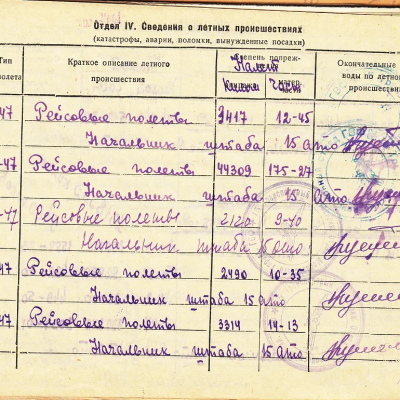 Отдел IV. Сведения о летных происшествиях
(катастрофы, аварии, поломки, вынужденные посадки)
Тип
Краткое описание летного происшествия
Налет
Часы
Окончательные
воды по летно
происшестви
47 Рейсовые полеты 3417 12-45
Начальник штаба 15 ато
-47 Рейсовые полеты 44309 175-27
Начальник штаба 15 ато
-47 Рейсовые полеты 2120 9-10
Начальник штаба 15 ато
47 Рейсовые полеты 2490 10-35
Начальник штаба 15 ато
47 Рейсовые полеты 3314 14-13
Начальник штаба 15 ато